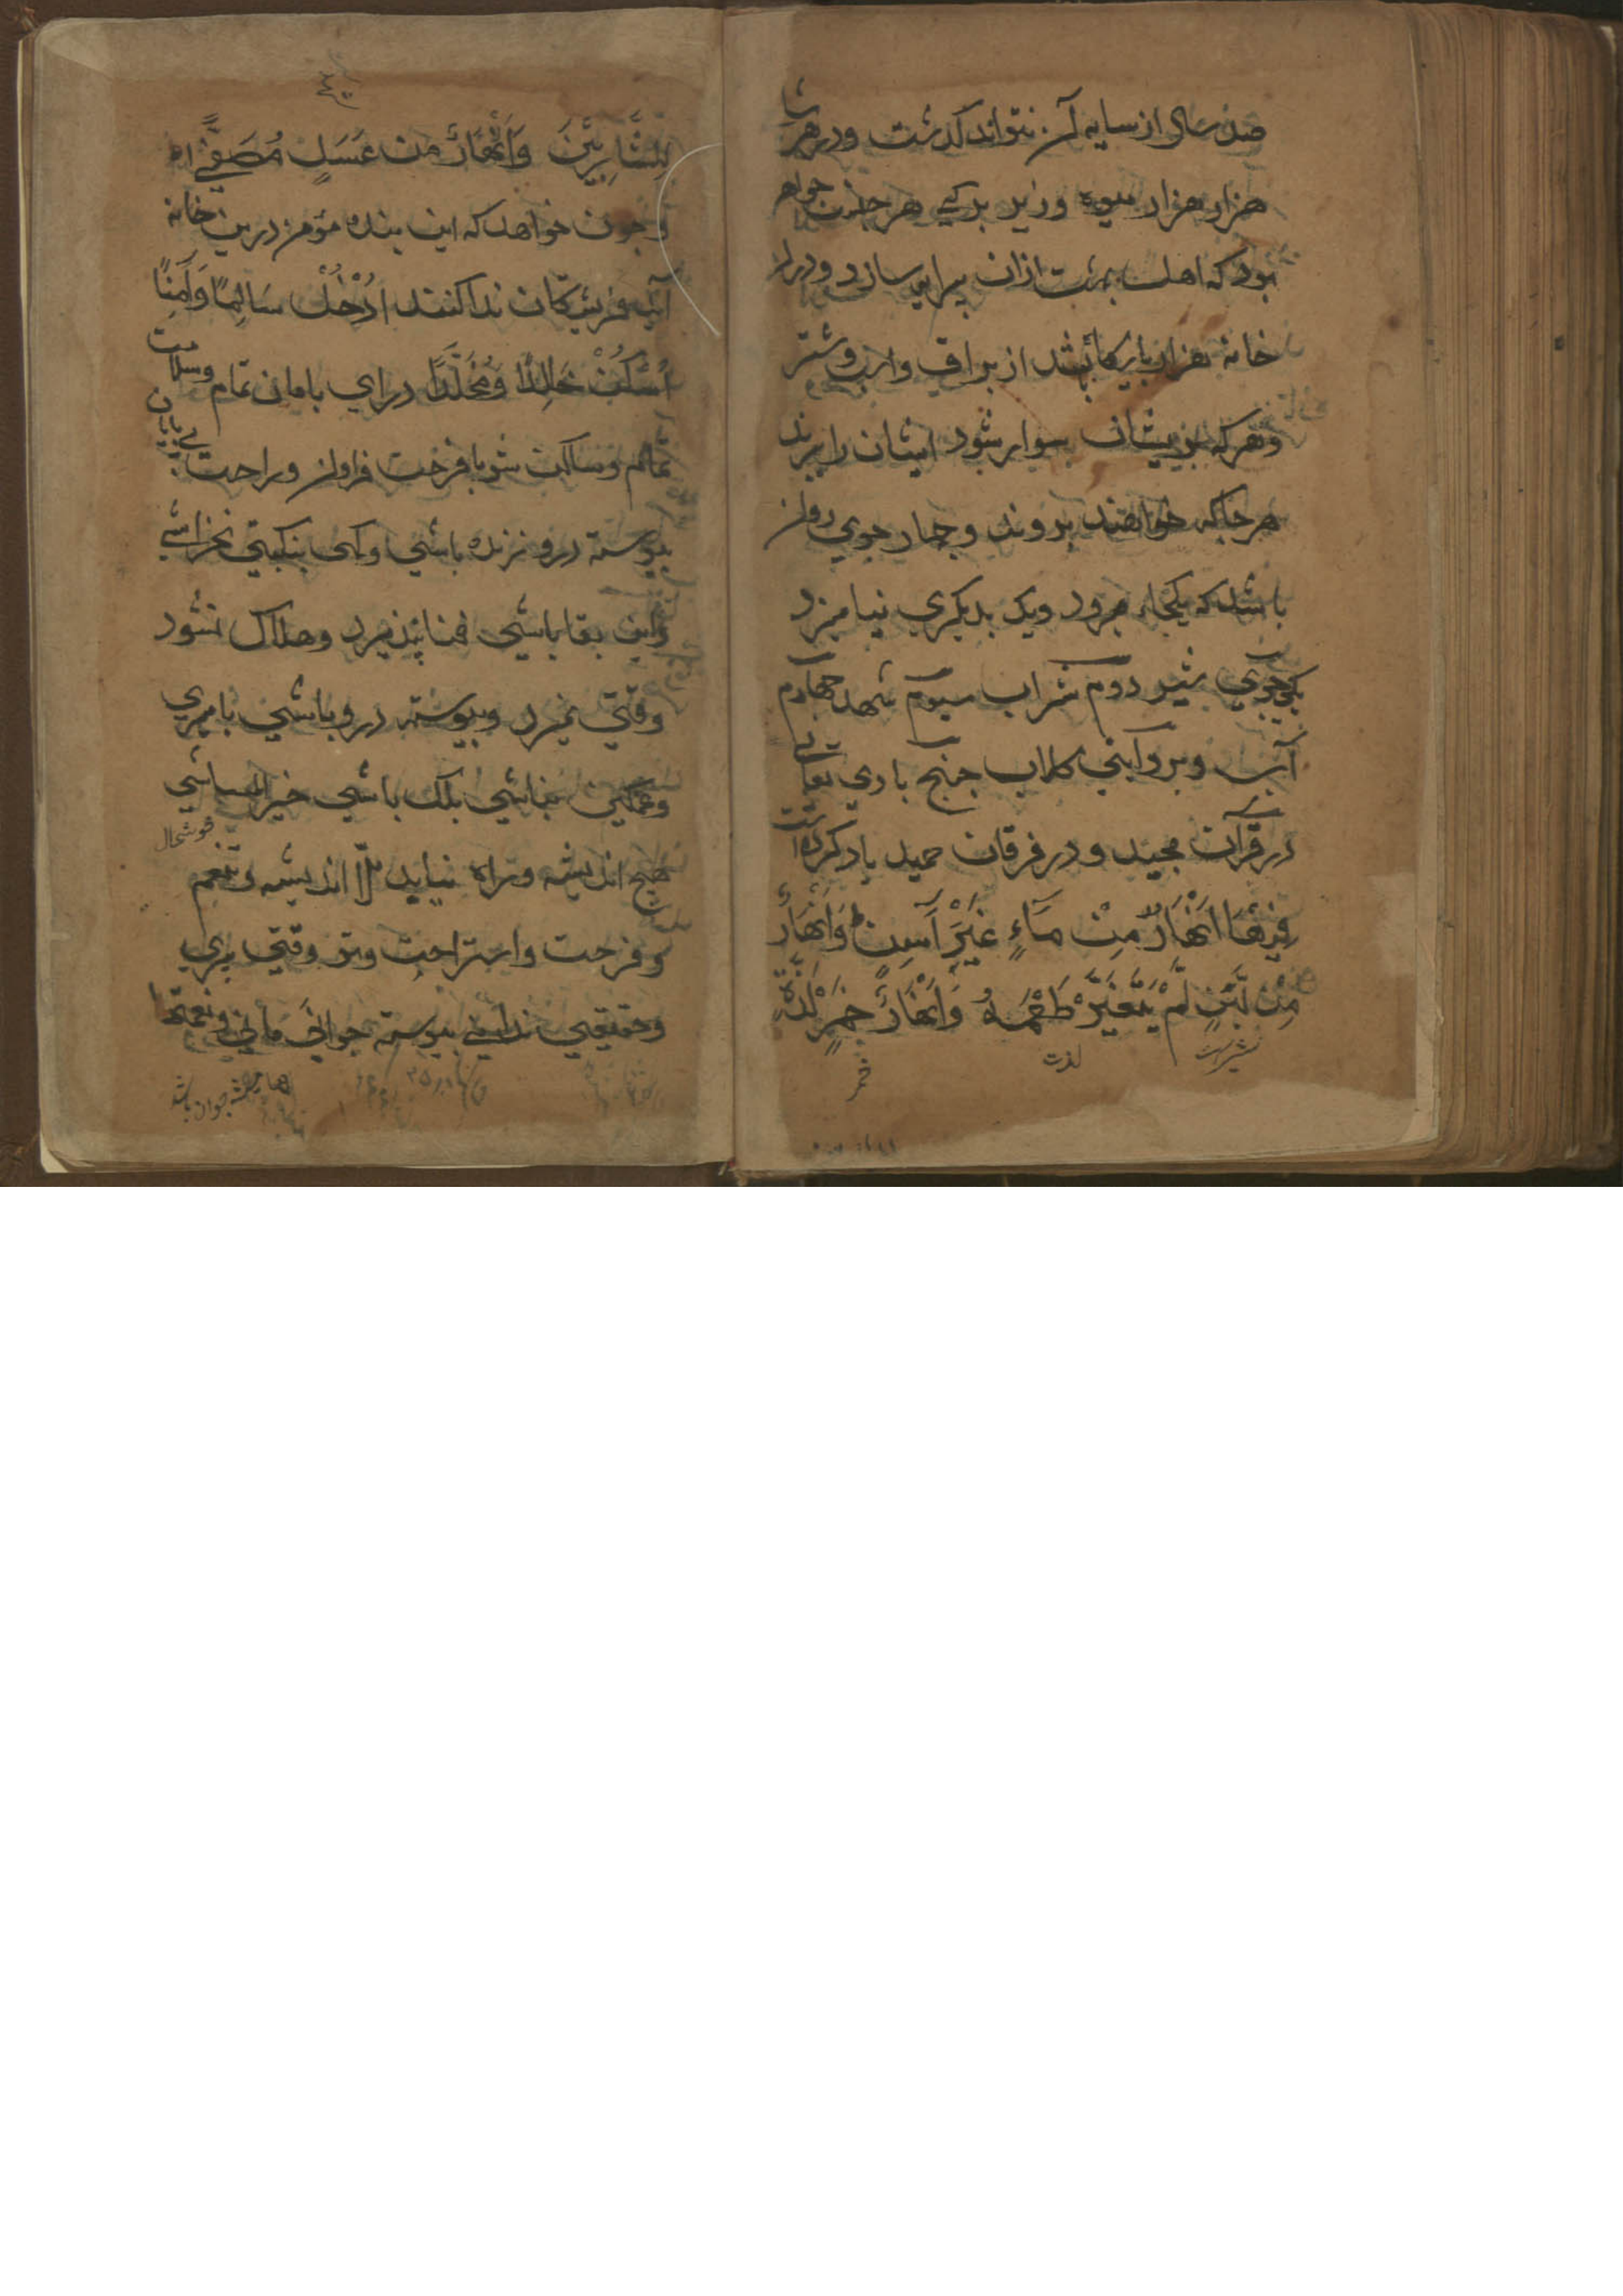 صد سال از سایه آن نتواند کذشت ودرهر شا
هزار هزار میوه وزیر بركی هر جنت جواهر
بود که اهل بهشت ازان پیرایه سازد ودران
خانه هزار بارکا باشد از براق واسب وشتر
وهرکه بریشان سوار شود ایشان را پرند
هرجاکه خواهند بروند وچهار جوي روان
باشد که یکجاء میرود ویک بدیکري نیامیزد
یکی جوي شیر دوم شراب سیوم شهد چهارم
آب وبروایتي کلاب چنانچ باري تعالی
درقرآن مجید ودر فرقان حمید یاد کرده است
فِيْهَا اَنْهَارٌ مِنْ مَآءٍ غَيْرِ آسِنٍ وَاَنْهَارٌ
مِنْ لَبَنٍ لَمْ يَتَغَيَّرْ طَعْمُهُ وَاَنْهَارٌ خَمْرٍ لَذَّةٍ
لذت
خمر
لِلشَّارِبِيْنَ وَاَنْهَارٌ مِنْ عَسَلٍ مُصَفًّى
وچون خواهد که این بنده مؤمن درین خانه
آید فریشتکان ندا کنند اُدْخُلْ سَالِمًا وَآمِنًا
اُسْكُنْ خَالِدًا وَمُخَلَّدًا دراي بامان تمام وسلامت
تمام وساکن شو بافرحت فراوان وراحت بی پایان
پیوسته درو زنده باشي وکهی بنکبتي نخراشي
واین بقا باشي فنا پذیرد وهلاک نشود
وقتي نمیرد وپیوسته درو باشي نامیري
وغمکین نباشي بلک باشي
خوشحال
هیچ اندیشه وتراه نیاید الّا اندیشه تنعم
وفرحت واستراحت وتو وقتي پیري
وحقیقي ندانی پیوسته جواني ماني ونعمتها
ها همیشه جوان باشد